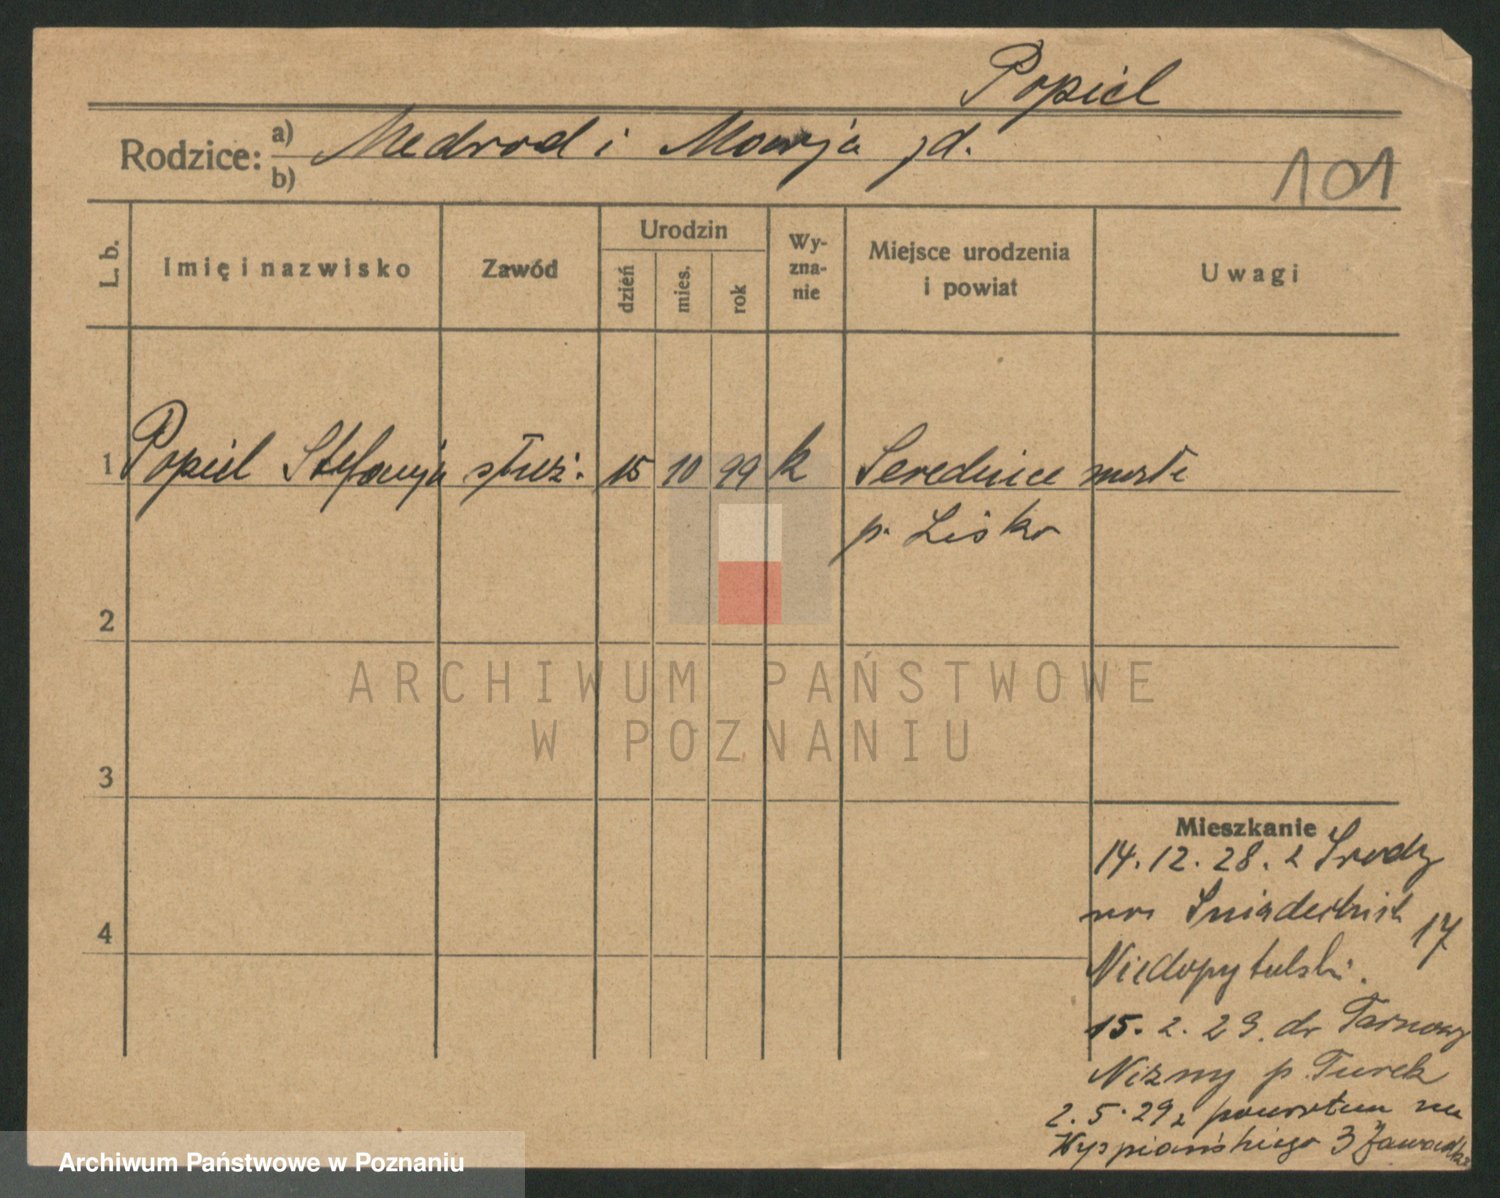 Popiel
Rodzice: a) b) i jd.
101
L. b.
Imię i nazwisko
Zawód
Urodzin
dzień
mies.
rok
Wy-
zna-
nie
Miejsce urodzenia
i powiat
Uwagi
1 Popiel Stefanja służ. 15 10 99 k Serednica
p. Lisko
2
3
4
Mieszkanie
14. 12. 28. z Środy
na Śniadeckich 17
Niedopytalski.
15. 2. 29. do
Niżny p. Turek
2. 5. 29 z powrotem na
Wyspiańskiego 3
ARCHIWUM PAŃSTWOWE
W POZNANIU
Archiwum Państwowe w Poznaniu